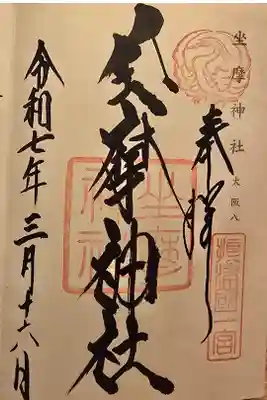 坐摩神社 大阪八
奉拝
攝津國一宮
坐摩神社
坐摩
神社
令和七年三月十六日